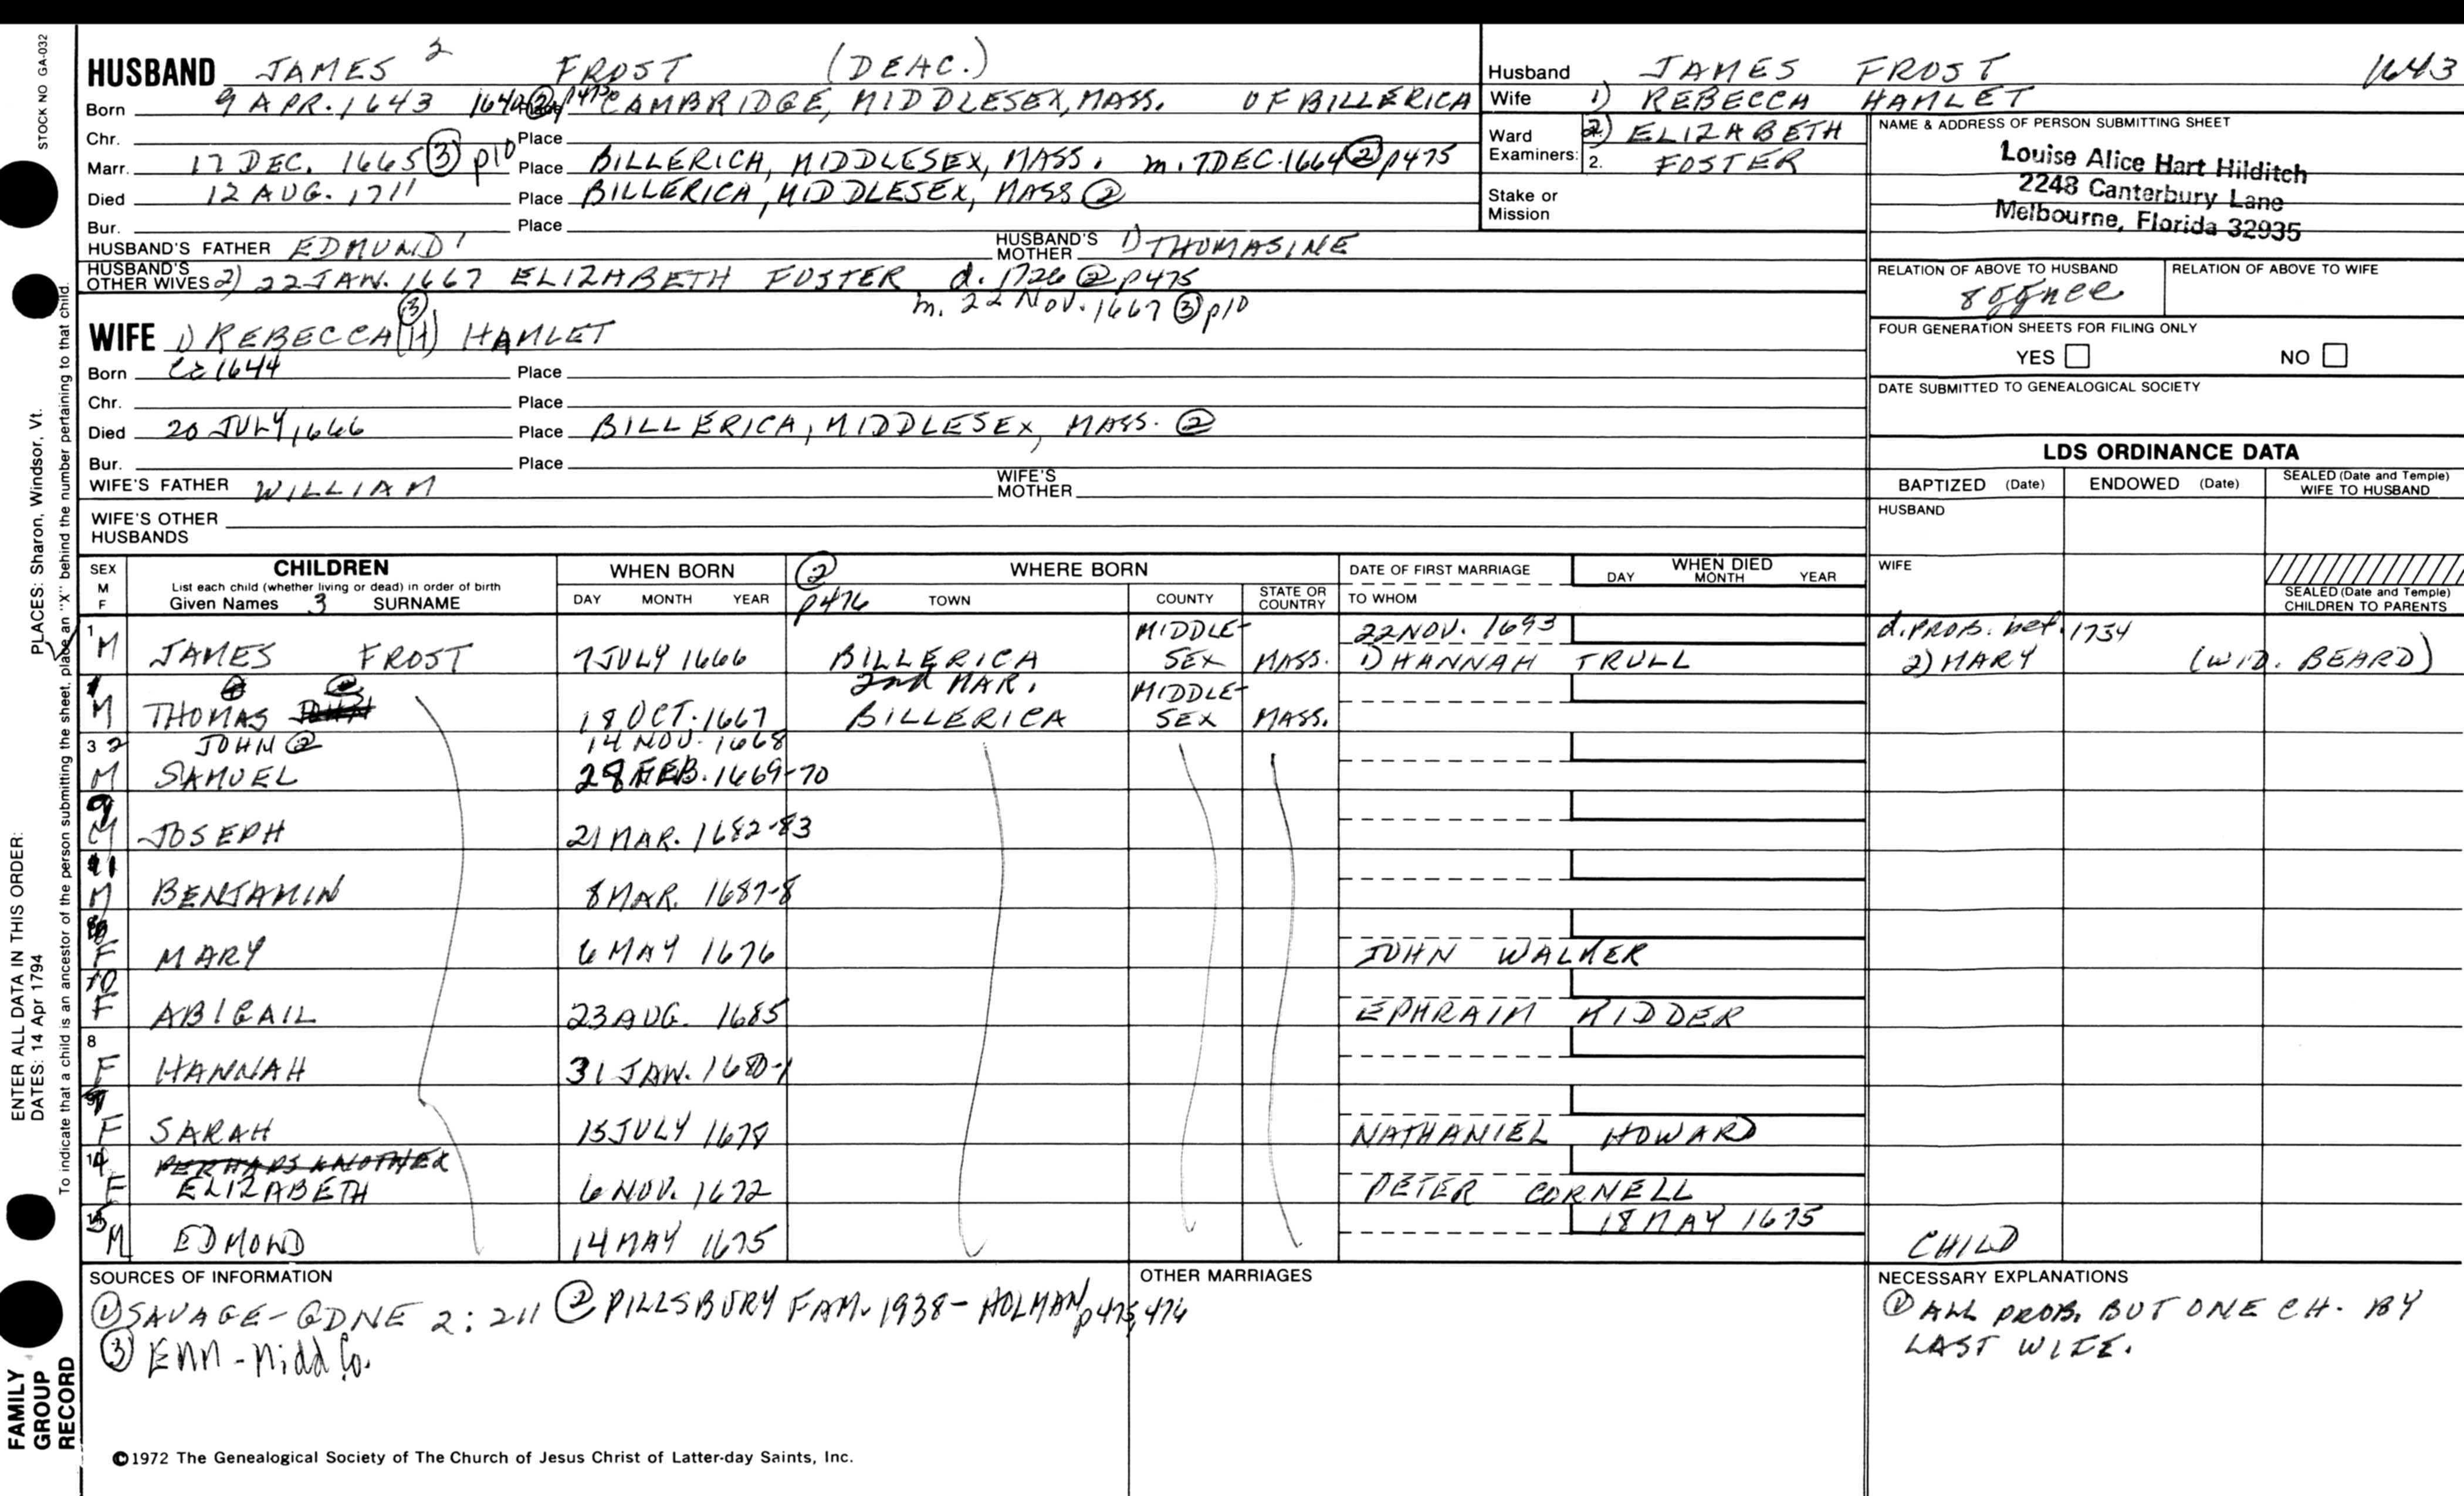 STOCK NO GA-032
HUSBAND JAMES 2 FROST (DEAC.)
Born 9 APR. 1643 1640 ② p475 Place CAMBRIDGE, MIDDLESEX, MASS. OF BILLERICA
Chr. Place
Marr. 17 DEC. 1665 ③ p10 Place BILLERICA, MIDDLESEX, MASS. m. 7DEC.1664 ② p475
Died 12 AUG. 1711 Place BILLERICA, MIDDLESEX, MASS ②
Bur. Place
HUSBAND'S FATHER EDMUND 1 HUSBAND'S MOTHER 1) THOMASINE
HUSBAND'S OTHER WIVES 2) 22 JAN. 1667 ELIZABETH FOSTER d. 1726 ② p475
m. 22 NOV. 1667 ③ p10
③
WIFE 1) REBECCA (H) HAMLET
Born Ca 1644 Place
Chr. Place
Died 20 JULY 1666 Place BILLERICA, MIDDLESEX, MASS. ②
Bur. Place
WIFE'S FATHER WILLIAM WIFE'S MOTHER
WIFE'S OTHER HUSBANDS
Husband JAMES FROST 1643
Wife 1) REBECCA HAMLET
Ward Examiners: 2) ELIZABETH
2. FOSTER
Stake or Mission
NAME & ADDRESS OF PERSON SUBMITTING SHEET
Louise Alice Hart Hilditch
2248 Canterbury Lane
Melbourne, Florida 32935
RELATION OF ABOVE TO HUSBAND RELATION OF ABOVE TO WIFE
FOUR GENERATION SHEETS FOR FILING ONLY
YES NO
DATE SUBMITTED TO GENEALOGICAL SOCIETY
LDS ORDINANCE DATA
BAPTIZED (Date) ENDOWED (Date) SEALED (Date and Temple) WIFE TO HUSBAND
HUSBAND
WIFE
SEALED (Date and Temple) CHILDREN TO PARENTS
SEX M F
CHILDREN
List each child (whether living or dead) in order of birth
Given Names 3 SURNAME
WHEN BORN
DAY MONTH YEAR
② p476
WHERE BORN
TOWN COUNTY STATE OR COUNTRY
DATE OF FIRST MARRIAGE
TO WHOM
WHEN DIED
DAY MONTH YEAR
1 MIDDLE- 22 NOV. 1693 d. PROB. bef. 1754
M JAMES FROST 7 JULY 1666 BILLERICA SEX MASS. 1) HANNAH TRULL 2) MARY (WID. BEARD)
2nd MAR. MIDDLE-
M THOMAS 18 OCT. 1667 BILLERICA SEX MASS.
3 2 JOHN ② 14 NOV. 1668
M SAMUEL 28 FEB. 1669-70
9
M JOSEPH 21 MAR. 1682-83
11
M BENJAMIN 8 MAR. 1687-8
F MARY 6 MAY 1676 JOHN WALKER
10
F ABIGAIL 23 AUG. 1685 EPHRAIM KIDDER
8
F HANNAH 31 JAN. 1680-1
F SARAH 15 JULY 1678 NATHANIEL HOWARD
PERHAPS ANOTHER
F ELIZABETH 6 NOV. 1672 PETER CORNELL
18 MAY 1675
M EDMOND 14 MAY 1675 CHILD
SOURCES OF INFORMATION
① SAVAGE-GDNE 2:211 ② PILLSBURY FAM. 1938- HOLMAN p475, 476
③ Midd Co.
OTHER MARRIAGES
NECESSARY EXPLANATIONS
① ALL PROB. BUT ONE CH. BY
LAST WIFE.
ENTER ALL DATA IN THIS ORDER:
DATES: 14 Apr 1794
PLACES: Sharon, Windsor, Vt.
To indicate that a child is an ancestor of the person submitting the sheet, place an "X" behind the number pertaining to that child.
FAMILY
GROUP
RECORD
©1972 The Genealogical Society of The Church of Jesus Christ of Latter-day Saints, Inc.